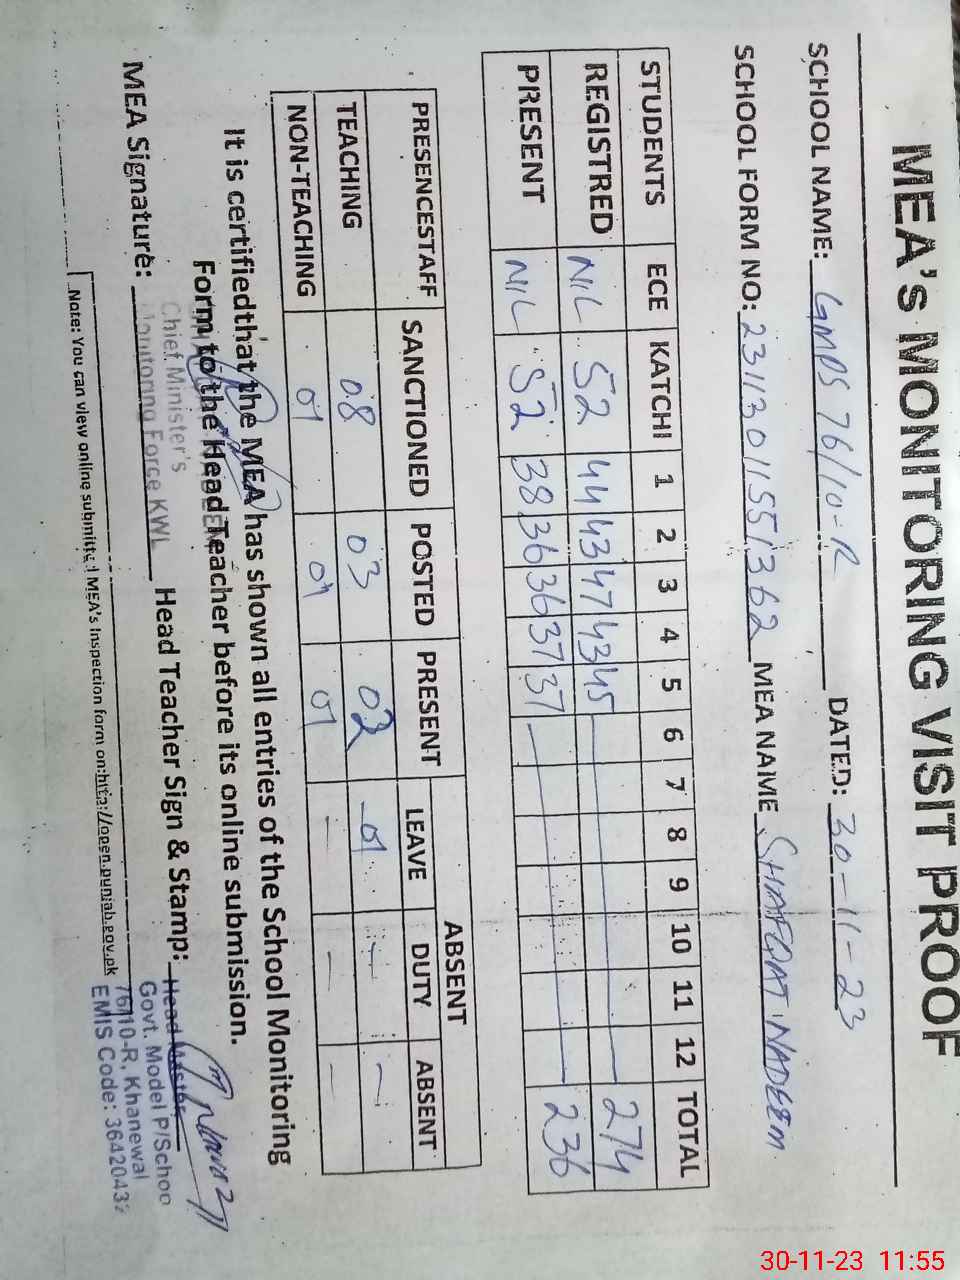 MEA's MONITORING VISIT PROOF
SCHOOL NAME: GMPS 76/10-R DATED: 30-11-23
SCHOOL FORM NO: 23113011551362 MEA NAME SHAFQAT NADEEM
STUDENTS ECE KATCHI 1 2 3 4 5 6 7 8 9 10 11 12 TOTAL
REGISTRED NIL 52 44 43 47 43 45 274
PRESENT NIL 52 38 36 36 37 37 236
PRESENCESTAFF SANCTIONED POSTED PRESENT ABSENT
LEAVE DUTY ABSENT
TEACHING 08 03 02 01 - -
NON-TEACHING 01 01 01 - - -
It is certifiedthat the MEA has shown all entries of the School Monitoring
Form to the Head Teacher before its online submission.
Chief Minister's
Monitoring Force KWL
MEA Signature: Head Teacher Sign & Stamp:
Head Master
Govt. Model P/Schoo
76/10-R, Khanewal
EMIS Code: 3642043
Note: You can view online submitted MEA's inspection form on:http://open.punjab.gov.pk
30-11-23 11:55